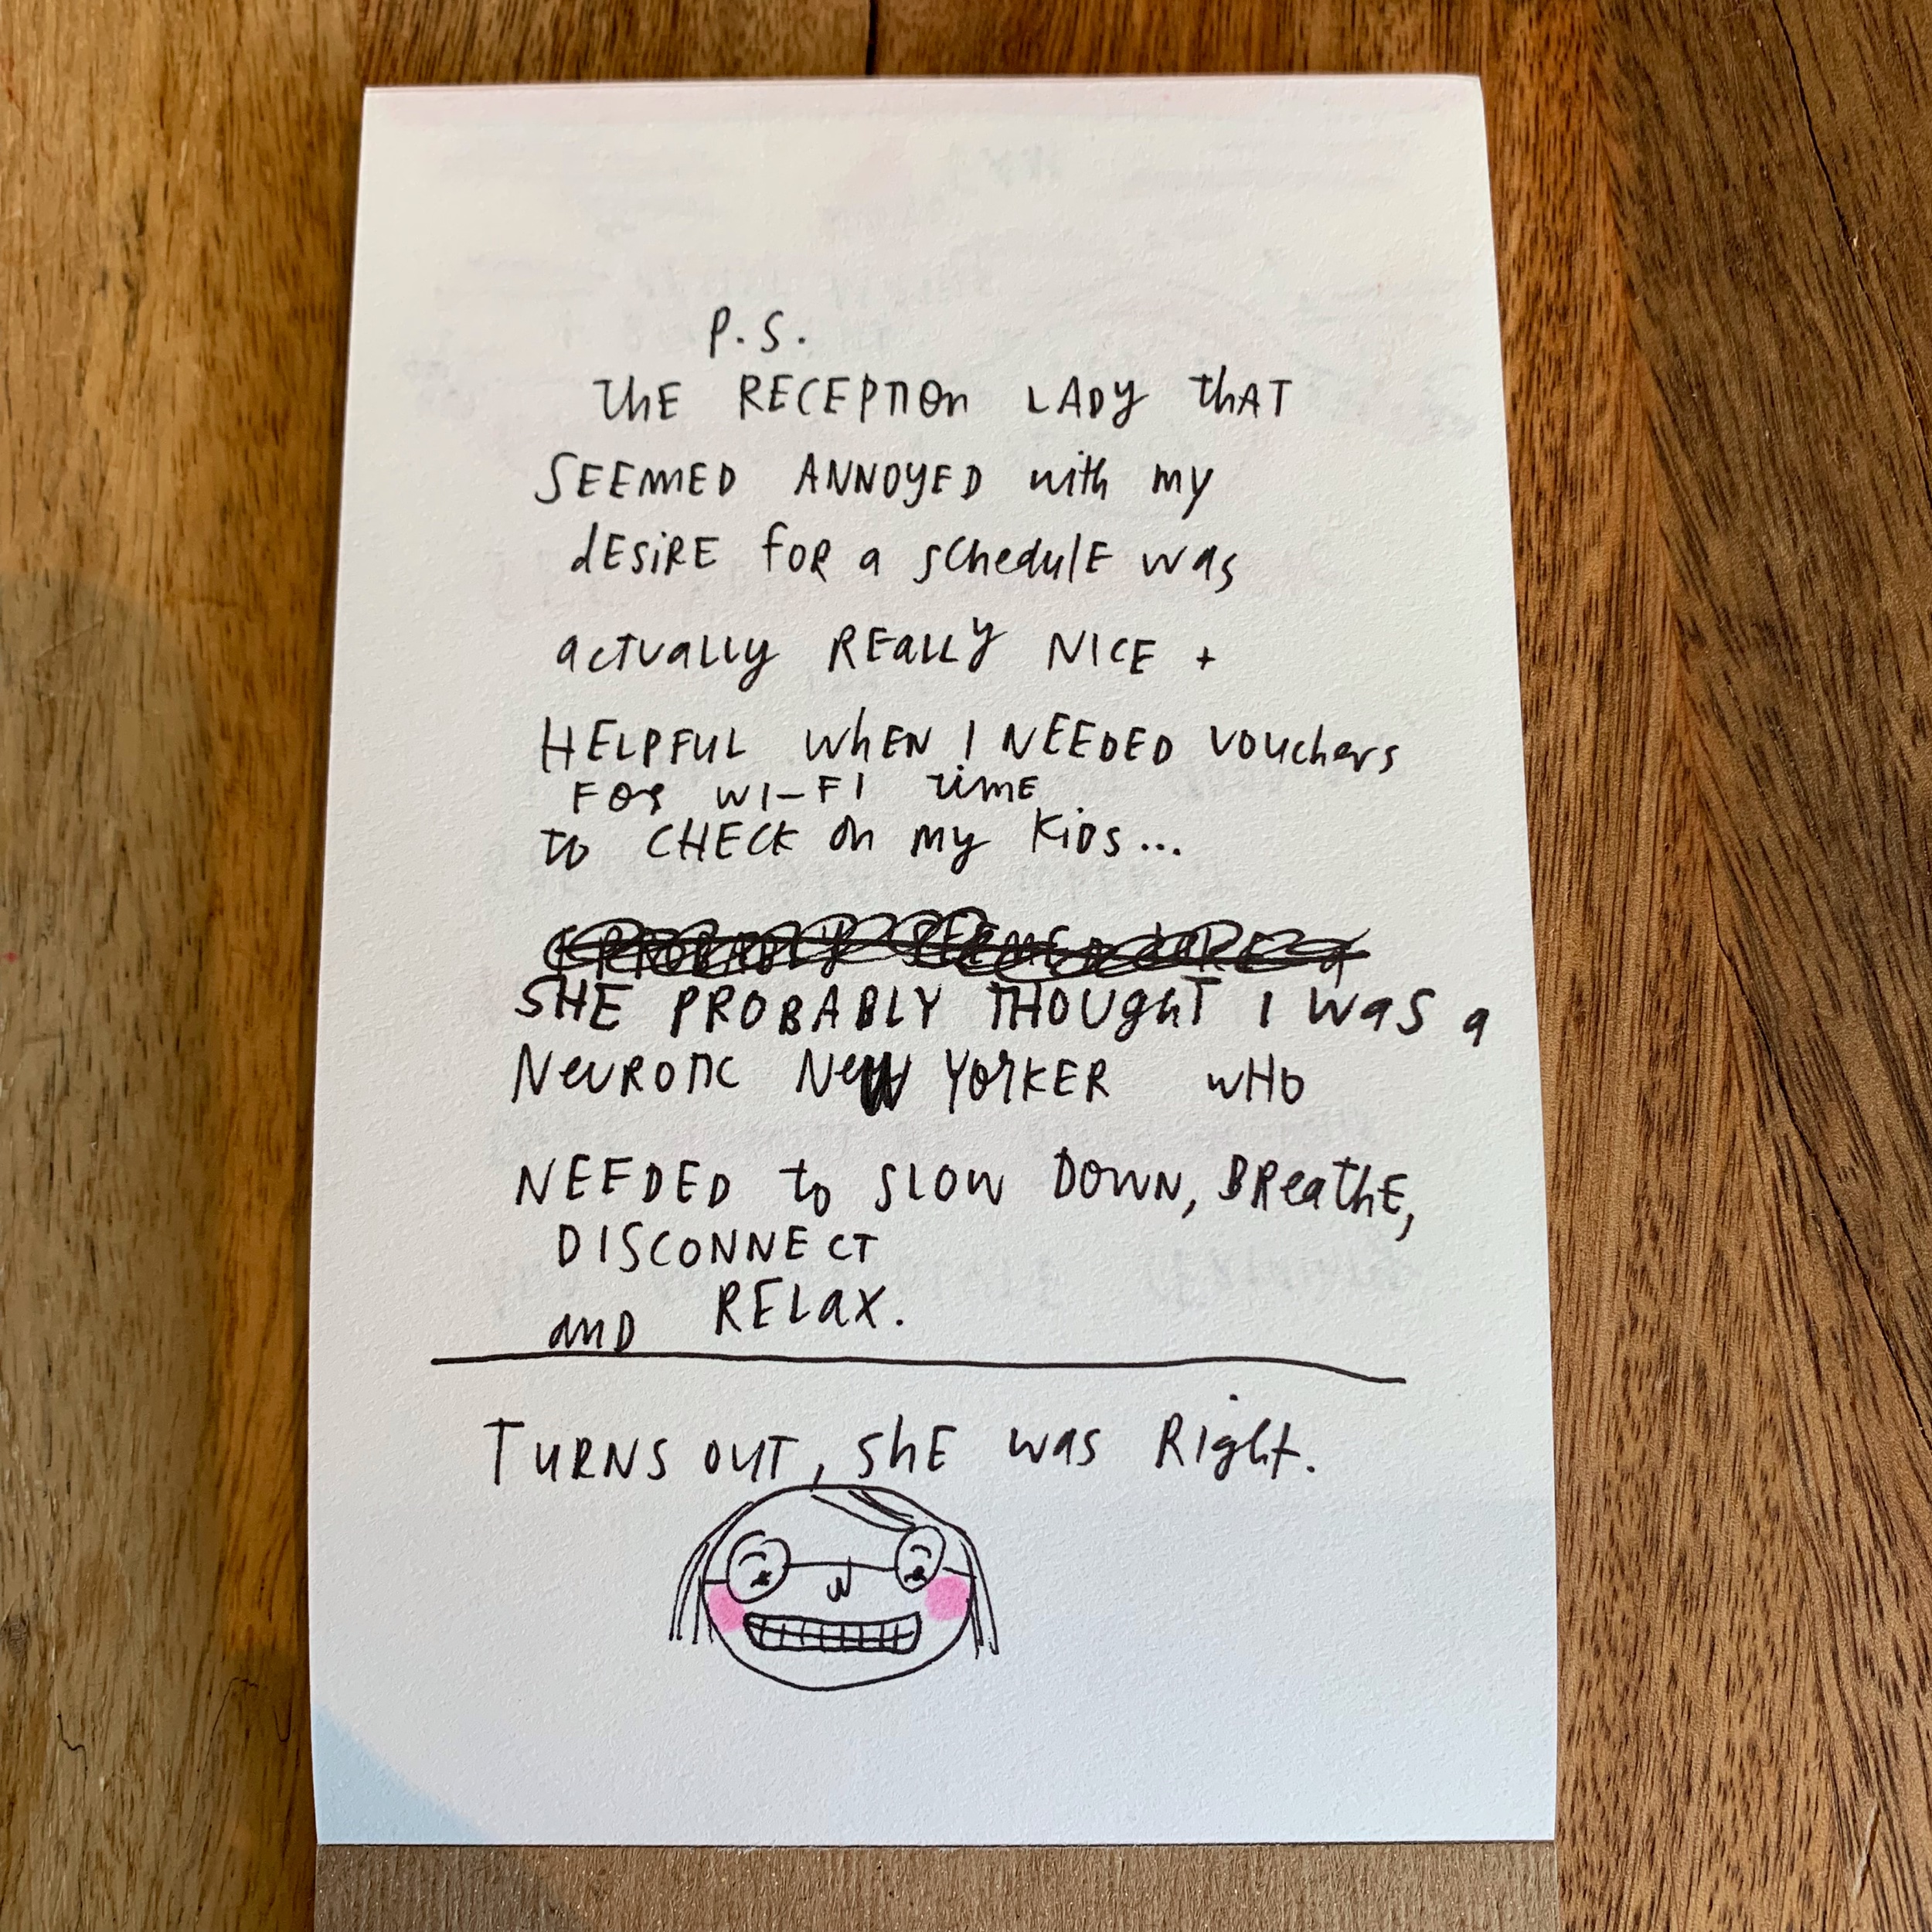 P.S.
thE RECEPTION LADY thAT
SEEMED ANNOYED with my
dESiRE foR a schedulE was
actually REallY NICE +
HELPFUL whEN I NEEDED vouchers
FOR WI-FI timE
to CHECK on my KiDS...
I PROBABLY SEEMED LIKE a
SHE PROBABLY THOUghT I waS a
NeuROTIC NeW YorKER wHO
NEEDED to SLOW DOWN, BReathE,
DISCONNECT
anD RELaX.
TURNS OUT, shE was Right.